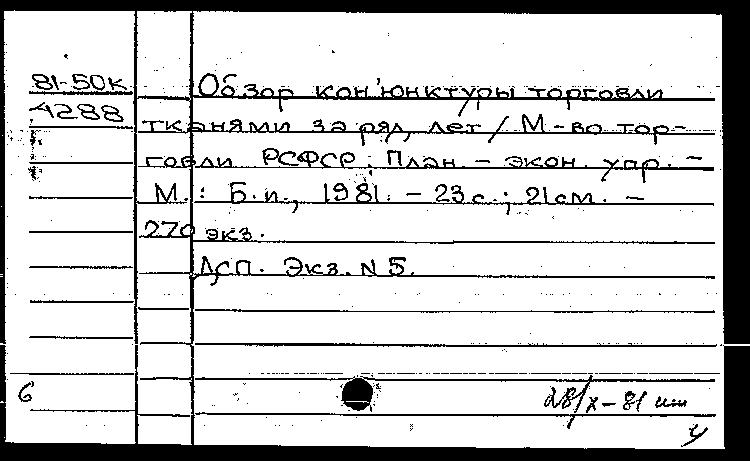 81-50К Обзор кон'юнктуры торговли
4288 тканями за ряд лет / М-во тор-
говли РСФСР; План. - экон. упр. -
М.: Б.и., 1981. - 23 с.; 21 см. -
270 экз.
ДСП. Экз. N 5.
6 28/X-81